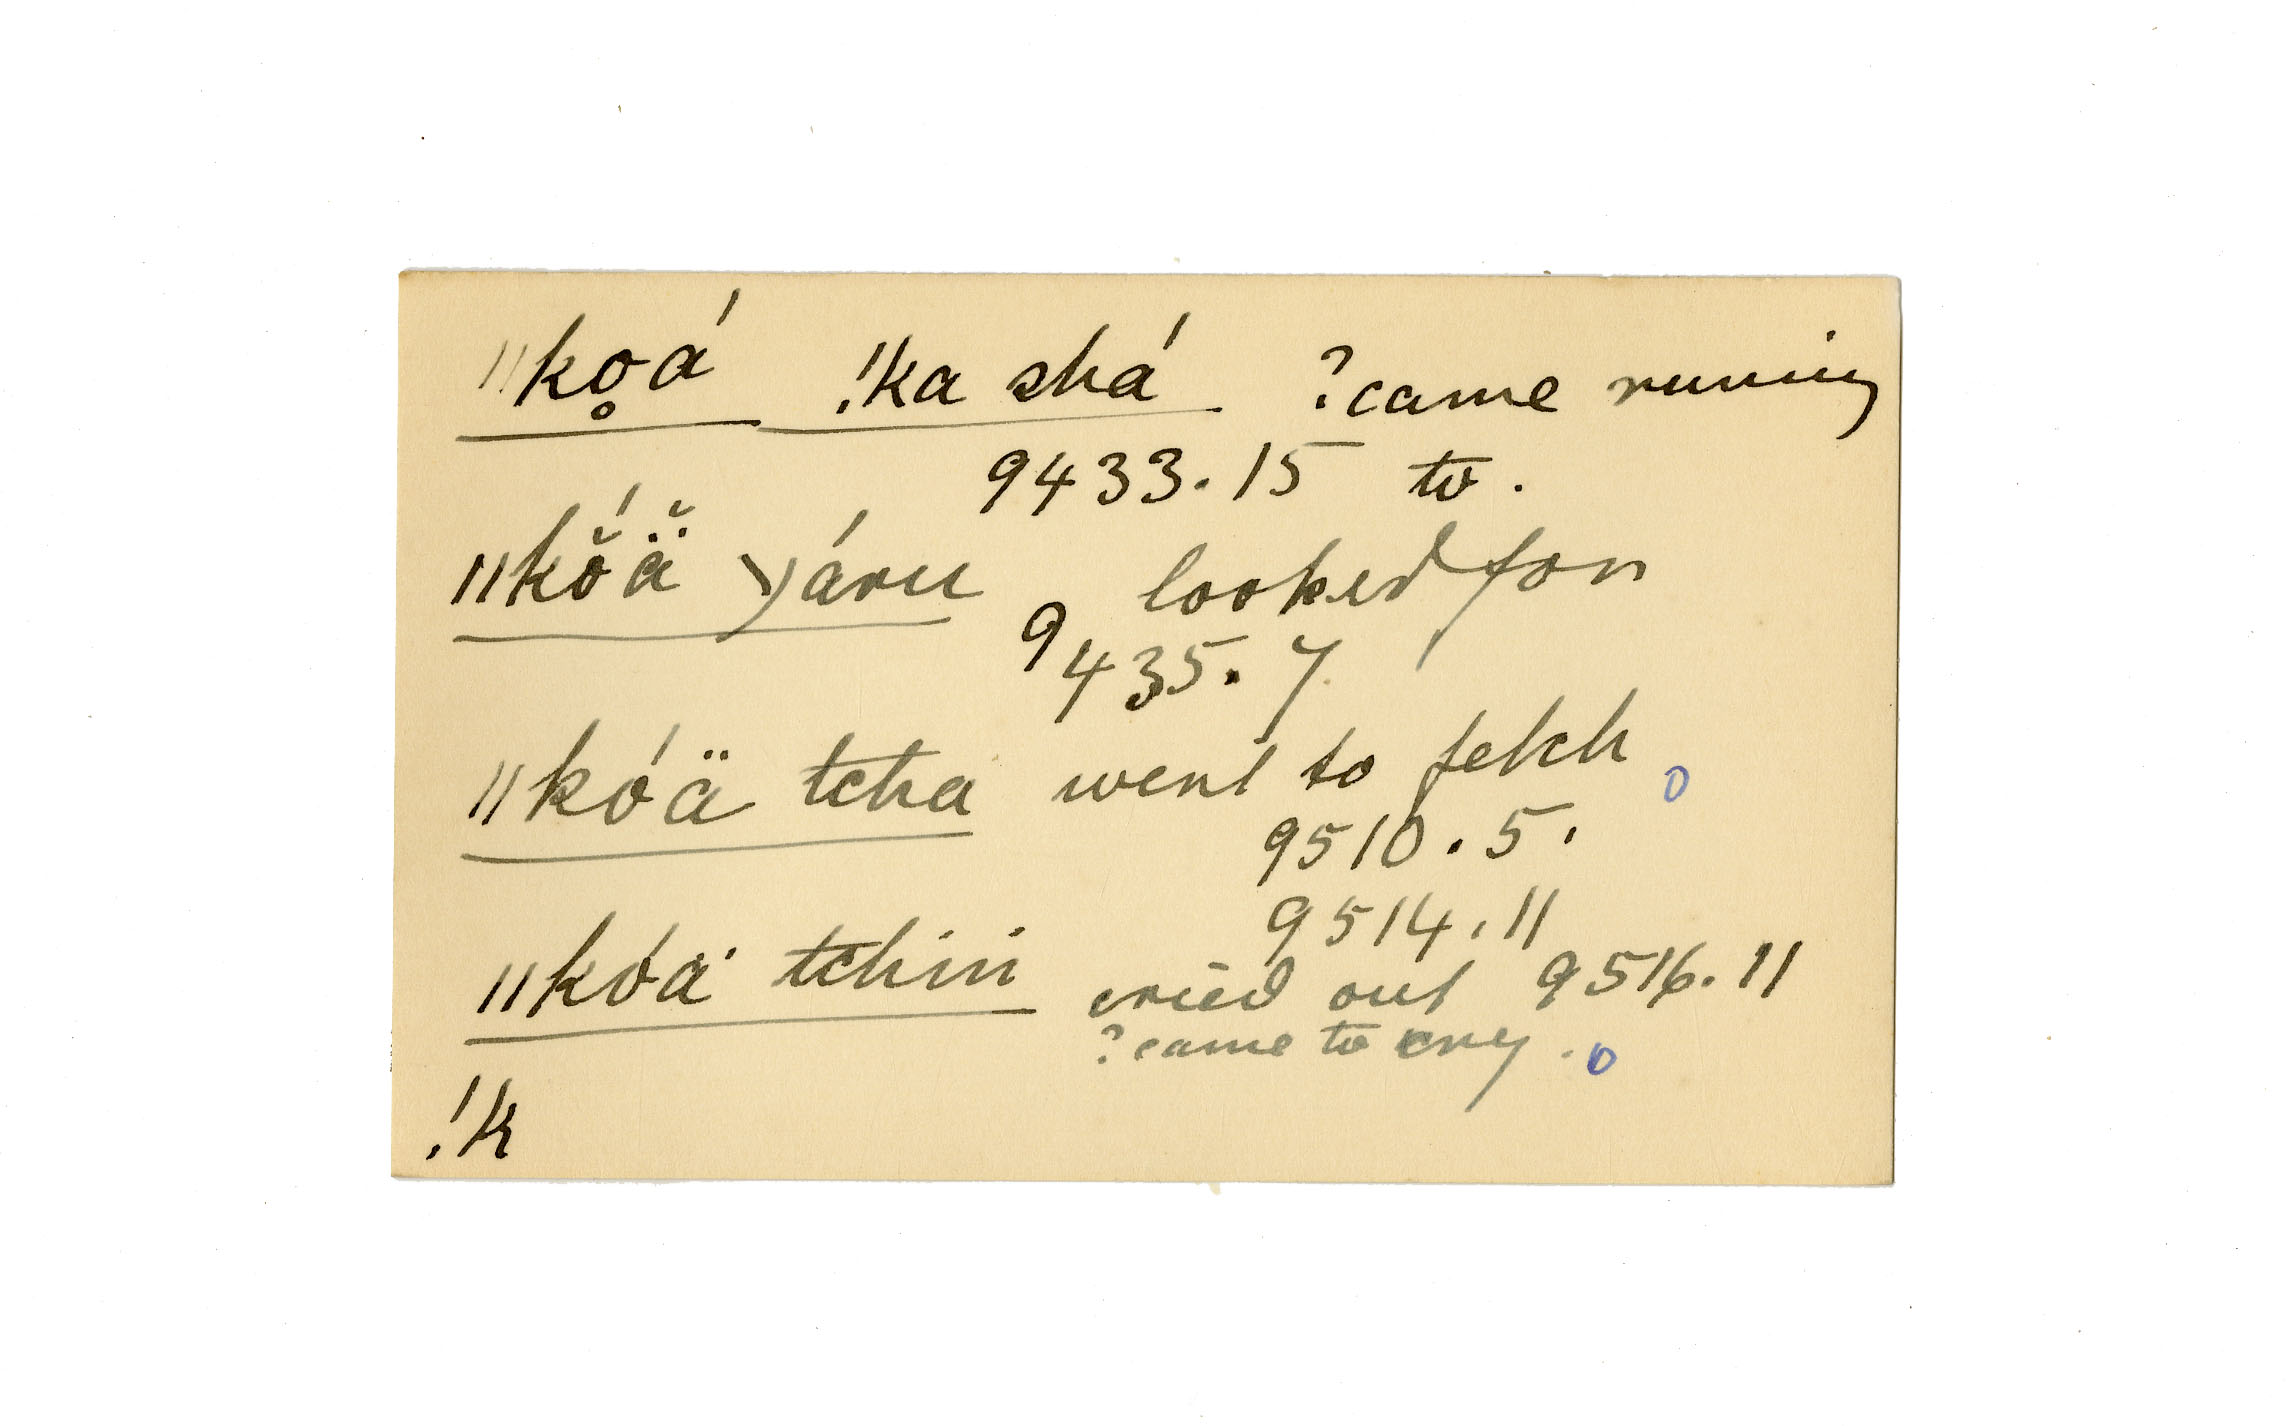 ǁko̥á !ka shá ?came runing
9433.15 to.
ǁkŏ́ä̆ yáru looked for
9435.7.
ǁkóä tcha went to fetch
9510.5.
9514.11
ǁkóä tchin cried out 9516.11
?came to cry.
!k